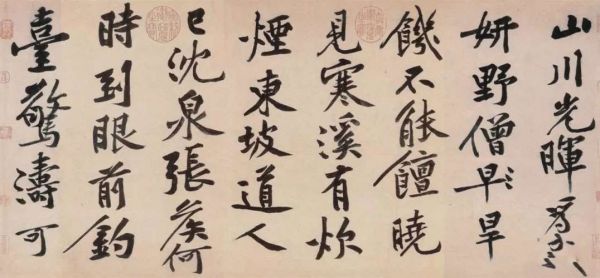 山川光暉為我
妍野僧早旱
饑不能饘曉
見寒溪有炊
煙東坡道人
已沈泉張侯何
時到眼前釣
臺驚濤可